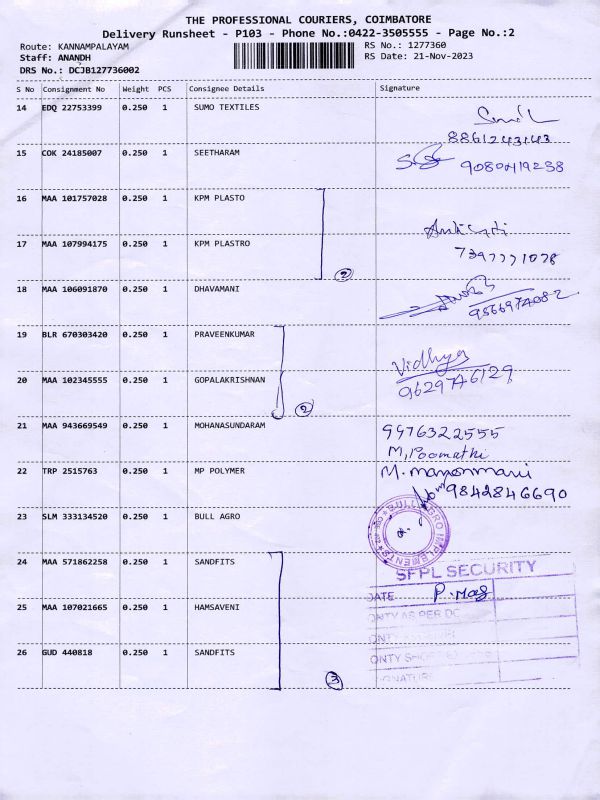 THE PROFESSIONAL COURIERS, COIMBATORE
Delivery Runsheet - P103 - Phone No.:0422-3505555 - Page No.:2
Route: KANNAMPALAYAM RS No.: 1277360
Staff: ANANDH RS Date: 21-Nov-2023
DRS No.: DCJB127736002
S No Consignment No Weight PCS Consignee Details Signature
14 EDQ 22753399 0.250 1 SUMO TEXTILES
8861243143
15 COK 24185007 0.250 1 SEETHARAM
9080419238
16 MAA 101757028 0.250 1 KPM PLASTO
17 MAA 107994175 0.250 1 KPM PLASTRO
7397771078
2
18 MAA 106091870 0.250 1 DHAVAMANI
9566974082
19 BLR 670303420 0.250 1 PRAVEENKUMAR
Vidhya
20 MAA 102345555 0.250 1 GOPALAKRISHNAN
9629746129
2
21 MAA 943669549 0.250 1 MOHANASUNDARAM
9976322555
M. Poomathi
22 TRP 2515763 0.250 1 MP POLYMER
M. manonmani
9842846690
23 SLM 333134520 0.250 1 BULL AGRO
BULL AGRO IMPLEMENTS
24 MAA 571862258 0.250 1 SANDFITS
SFPL SECURITY
DATE
25 MAA 107021665 0.250 1 HAMSAVENI
QNTY AS PER DC
26 GUD 440818 0.250 1 SANDFITS
3
SIGNATURE